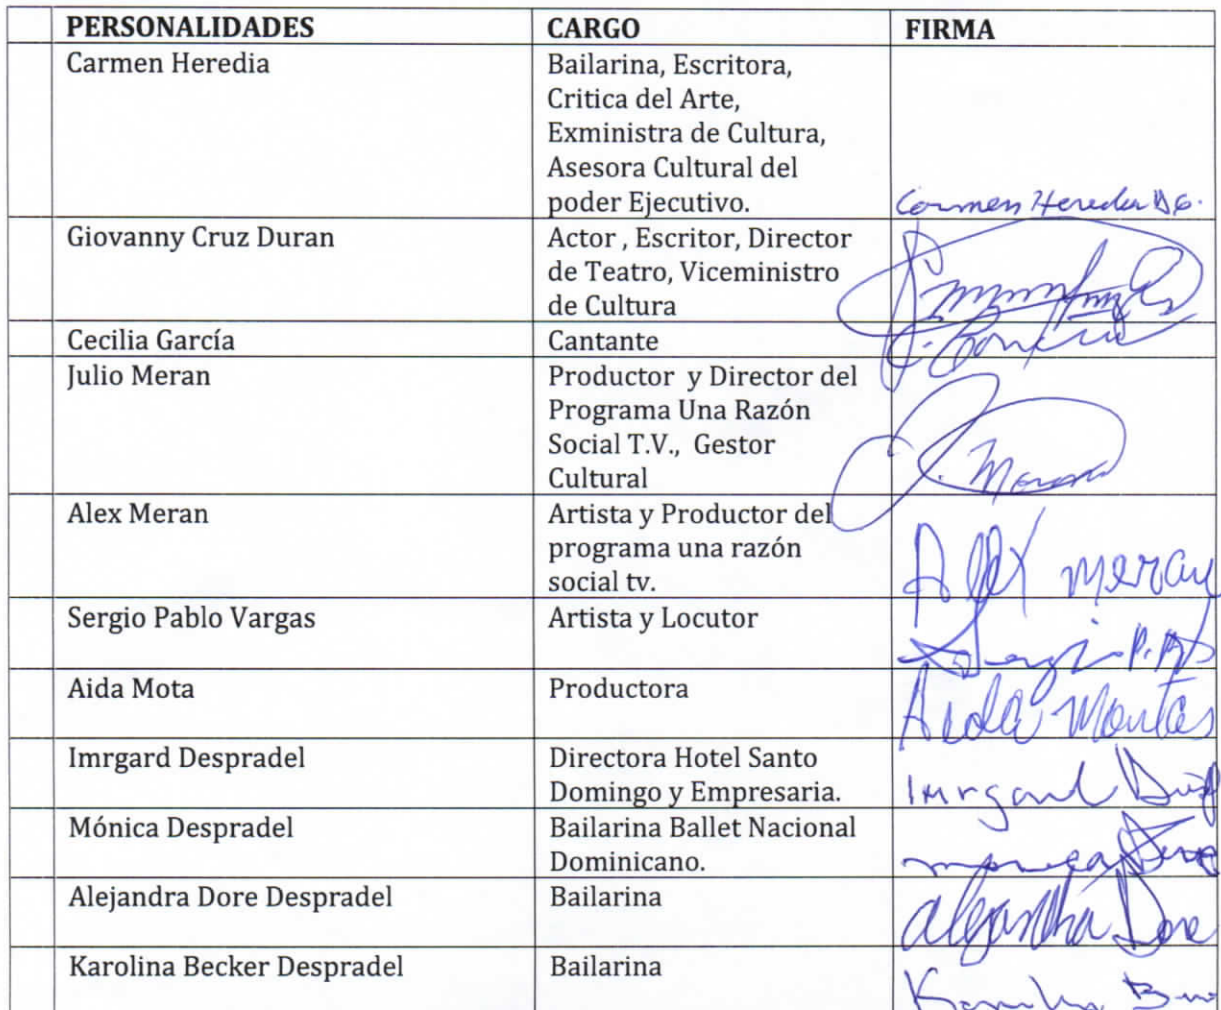 PERSONALIDADES CARGO FIRMA
Carmen Heredia Bailarina, Escritora,
Critica del Arte,
Exministra de Cultura,
Asesora Cultural del
poder Ejecutivo. Carmen Heredia
Giovanny Cruz Duran Actor , Escritor, Director
de Teatro, Viceministro
de Cultura
Cecilia García Cantante
Julio Meran Productor y Director del
Programa Una Razón
Social T.V., Gestor
Cultural
Alex Meran Artista y Productor del
programa una razón
social tv. Alex meran
Sergio Pablo Vargas Artista y Locutor
Sergio
Aida Mota Productora
Aida Montas
Imrgard Despradel Directora Hotel Santo
Domingo y Empresaria. Imrgard
Mónica Despradel Bailarina Ballet Nacional
Dominicano. monica
Alejandra Dore Despradel Bailarina
alejandra Dore
Karolina Becker Despradel Bailarina